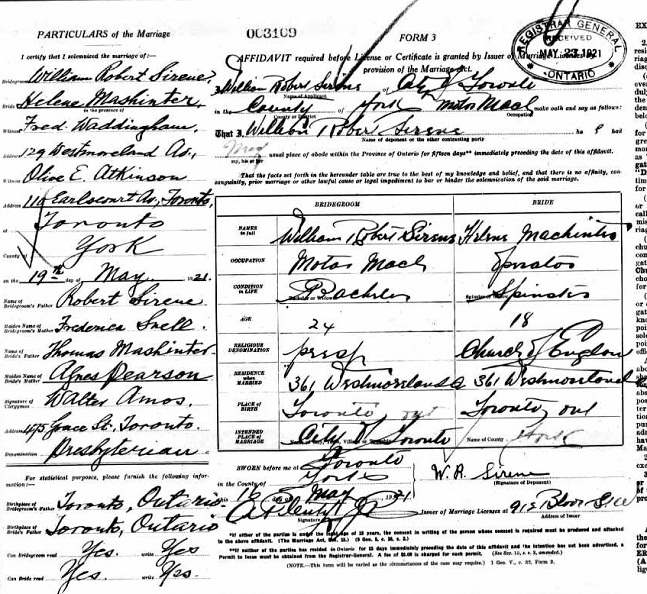 PARTICULARS of the Marriage
I certify that I solemnized the marriage of:—
Bridegroom William Robert Sirene
Bride Helene Mashinter
in the presence of
Witness Fred. Waddingham
Address 129 Westmoreland Av.,
Witness Olive E. Atkinson
Address 110 Earlscourt Av, Toronto,
at Toronto
County of York
on the 19th day of May 1921.
Name of Bridegroom's Father Robert Sirene
Maiden Name of Bridegroom's Mother Frederica Snell.
Name of Bride's Father Thomas Mashinter
Maiden Name of Bride's Mother Agnes Pearson
Signature of Clergyman Walter Amos.
Address 495 Grace St. Toronto.
Denomination Presbyterian
For statistical purposes, please furnish the following
Birthplace of Bridegroom's Father Toronto, Ontario
Birthplace of Bride's Father Toronto, Ontario
Can Bridegroom read Yes. write Yes
Can Bride read Yes. write Yes.
003109
FORM 3
REGISTRAR GENERAL
RECEIVED
MAY 23 1921
ONTARIO
AFFIDAVIT required before License or Certificate is granted by Issuer of Marriage Licenses
provision of the Marriage Act.
I, William Robert Sirene City of Toronto
Name of Applicant
in the County of York Motor Mach make oath and say as follows:
County or District
Occupation
That I, William Robert Sirene ha
Name of deponent or the other contracting party
my
my, his or her usual place of abode within the Province of Ontario for fifteen days** immediately preceding the date of this affidavit.
That the facts set forth in the hereunder table are true to the best of my knowledge and belief, and that there is no affinity, consanguinity, prior marriage or other lawful cause or legal impediment to bar or hinder the solemnization of the said marriage.
BRIDEGROOM BRIDE
NAMES in full William Robert Sirene Helene Machinter
OCCUPATION Motor Mach
CONDITION IN LIFE Bachelor Spinster
AGE 24 18
RELIGIOUS DENOMINATION presp Church of England
RESIDENCE WHEN MARRIED 361 Westmoreland 361 Westmorland
PLACE OF BIRTH Toronto ont Toronto ont
INTENDED PLACE OF MARRIAGE City of Toronto Name of County York
SWORN before me at Toronto
in the County of York
16 day of May 1921
W. R. Sirene
(Signature of Deponent)
Signature
Issuer of Marriage Licenses at 912 Bloor St W
Address of Issuer
*If either of the parties is under the age of 18 years, the consent in writing of the person whose consent is required must be produced and attached to the above affidavit.
**If neither of the parties has resided in Ontario for 15 days immediately preceding the date of this affidavit and the intention has not been advertised, a Permit to Issue must be obtained from the Registrar-General. A fee of $5.00 is charged for each permit.
(NOTE.—This form will be varied as the circumstances of the case may require.) 1 Geo. V., c. 32, Form 2.